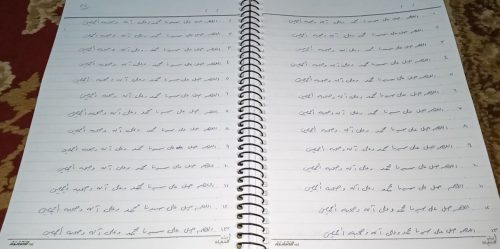 اللهم صل على سيدنا محمد وعلى آله وصحبه أجمعين
اللهم صل على سيدنا محمد وعلى آله وصحبه أجمعين
اللهم صل على سيدنا محمد وعلى آله وصحبه أجمعين
اللهم صل على سيدنا محمد وعلى آله وصحبه أجمعين
اللهم صل على سيدنا محمد وعلى آله وصحبه أجمعين
اللهم صل على سيدنا محمد وعلى آله وصحبه أجمعين
اللهم صل على سيدنا محمد وعلى آله وصحبه أجمعين
اللهم صل على سيدنا محمد وعلى آله وصحبه أجمعين
اللهم صل على سيدنا محمد وعلى آله وصحبه أجمعين
اللهم صل على سيدنا محمد وعلى آله وصحبه أجمعين
اللهم صل على سيدنا محمد وعلى آله وصحبه أجمعين
اللهم صل على سيدنا محمد وعلى آله وصحبه أجمعين
اللهم صل على سيدنا محمد وعلى آله وصحبه أجمعين
١. اللهم صل على سيدنا محمد وعلى آله وصحبه أجمعين
٢. اللهم صل على سيدنا محمد وعلى آله وصحبه أجمعين
٣. اللهم صل على سيدنا محمد وعلى آله وصحبه أجمعين
٤. اللهم صل على سيدنا محمد وعلى آله وصحبه أجمعين
٥. اللهم صل على سيدنا محمد وعلى آله وصحبه أجمعين
٦. اللهم صل على سيدنا محمد وعلى آله وصحبه أجمعين
٧. اللهم صل على سيدنا محمد وعلى آله وصحبه أجمعين
٨. اللهم صل على سيدنا محمد وعلى آله وصحبه أجمعين
٩. اللهم صل على سيدنا محمد وعلى آله وصحبه أجمعين
١٠. اللهم صل على سيدنا محمد وعلى آله وصحبه أجمعين
١١. اللهم صل على سيدنا محمد وعلى آله وصحبه أجمعين
١٢. اللهم صل على سيدنا محمد وعلى آله وصحبه أجمعين
١٣. اللهم صل على سيدنا محمد وعلى آله وصحبه أجمعين